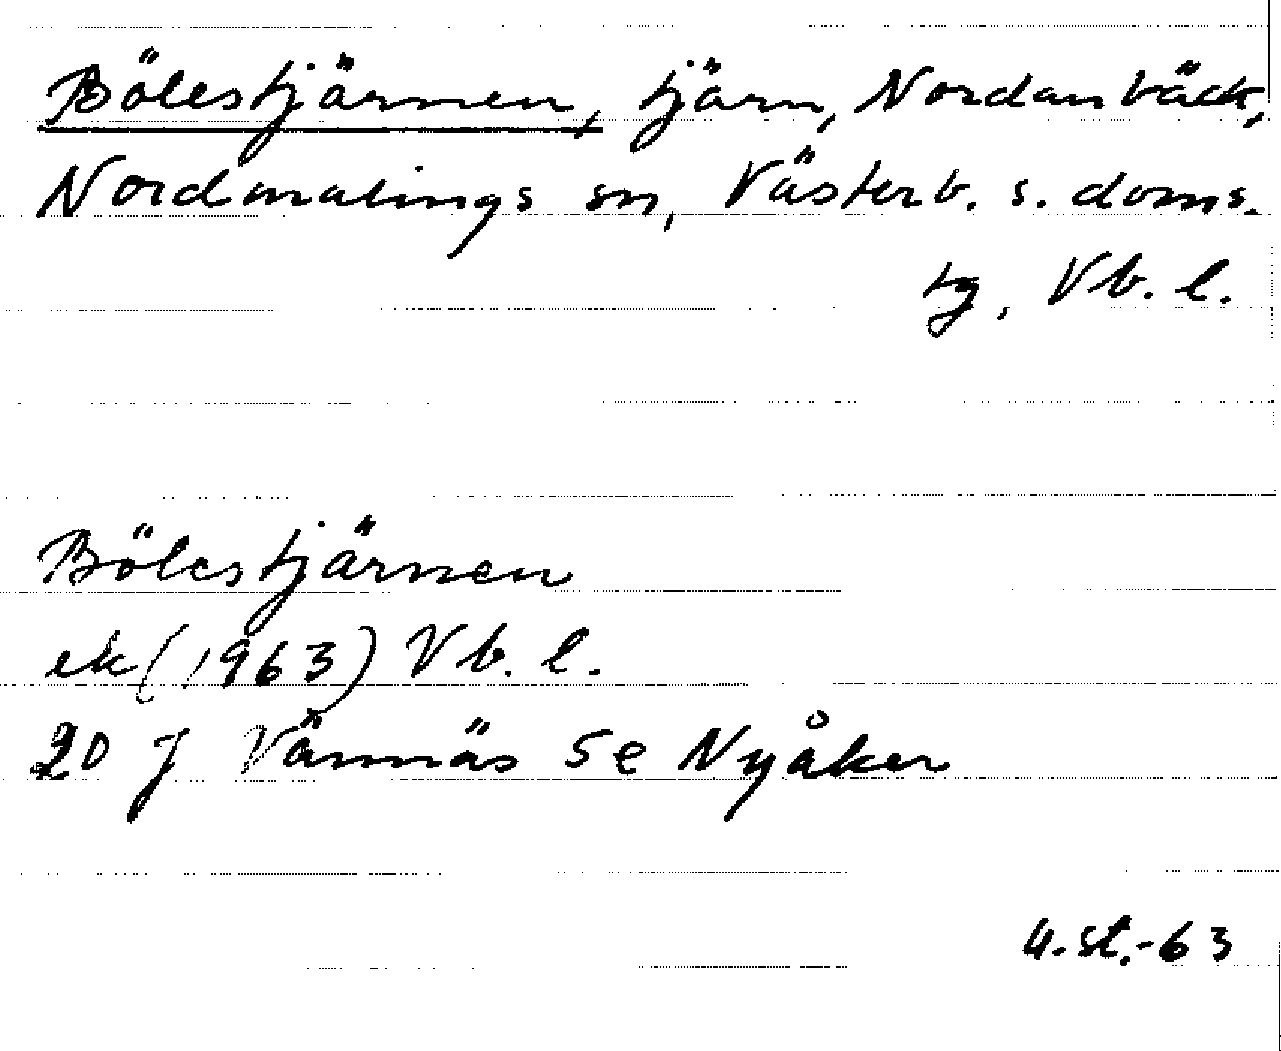 Bölestjärnen, tjärn, Nordanbäck,
Nordmalings sn, Västerb. s. doms.
tg, Vb. l.
Bölestjärnen
ek (1963) Vb. l.
20 J Vännäs 5e Nyåker
u. st. -63